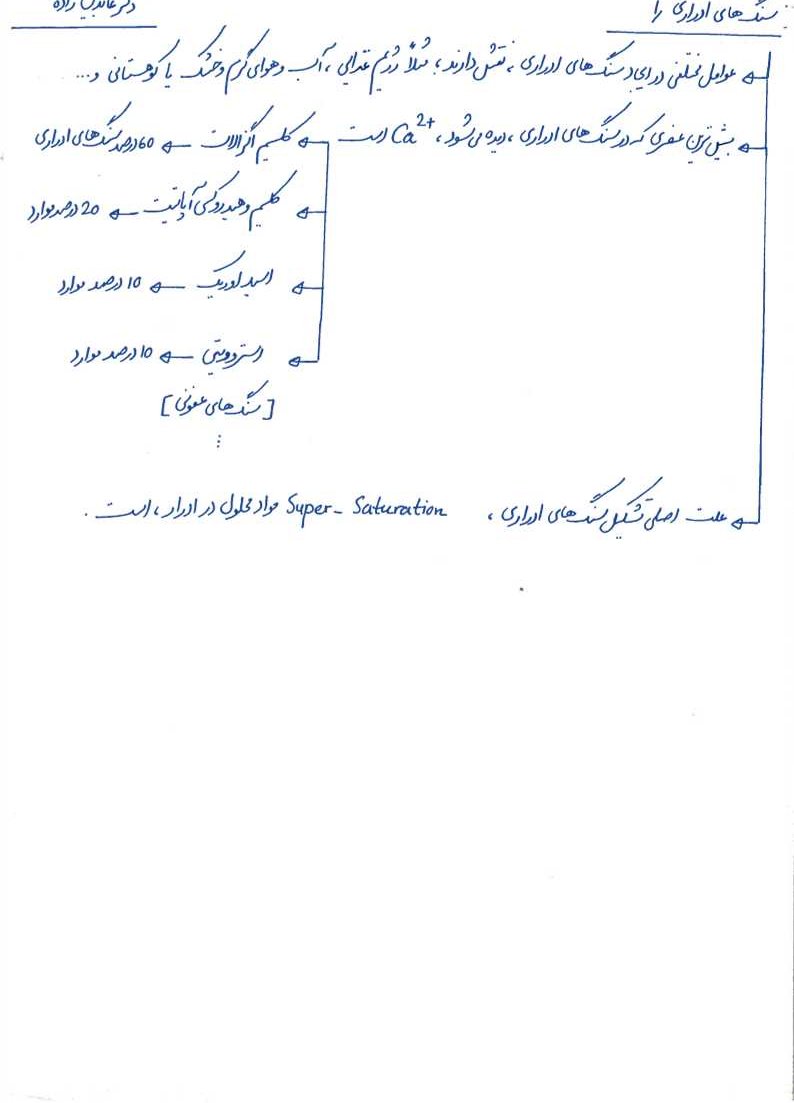 سنگ های ادراری را
زاده
عوامل مختلفی در ایجاد سنگ های ادراری، نقش دارند؛ مثلاً رژیم غذایی، آب و هوای گرم و خشک یا کوهستانی و...
بیش ترین عنصری که در سنگ های ادراری، دیده می‌شود، Ca2+ است
کلسیم اگزالات ← 60 درصد سنگ های ادراری
کلسیم و هیدروکسی آپاتیت ← 20 درصد موارد
اسید اوریک ← 10 درصد موارد
استروویتی ← 10 درصد موارد
[سنگ های عفونی]
⋮
علت اصلی تشکیل سنگ های ادراری، Super-Saturation مواد محلول در ادرار، است.